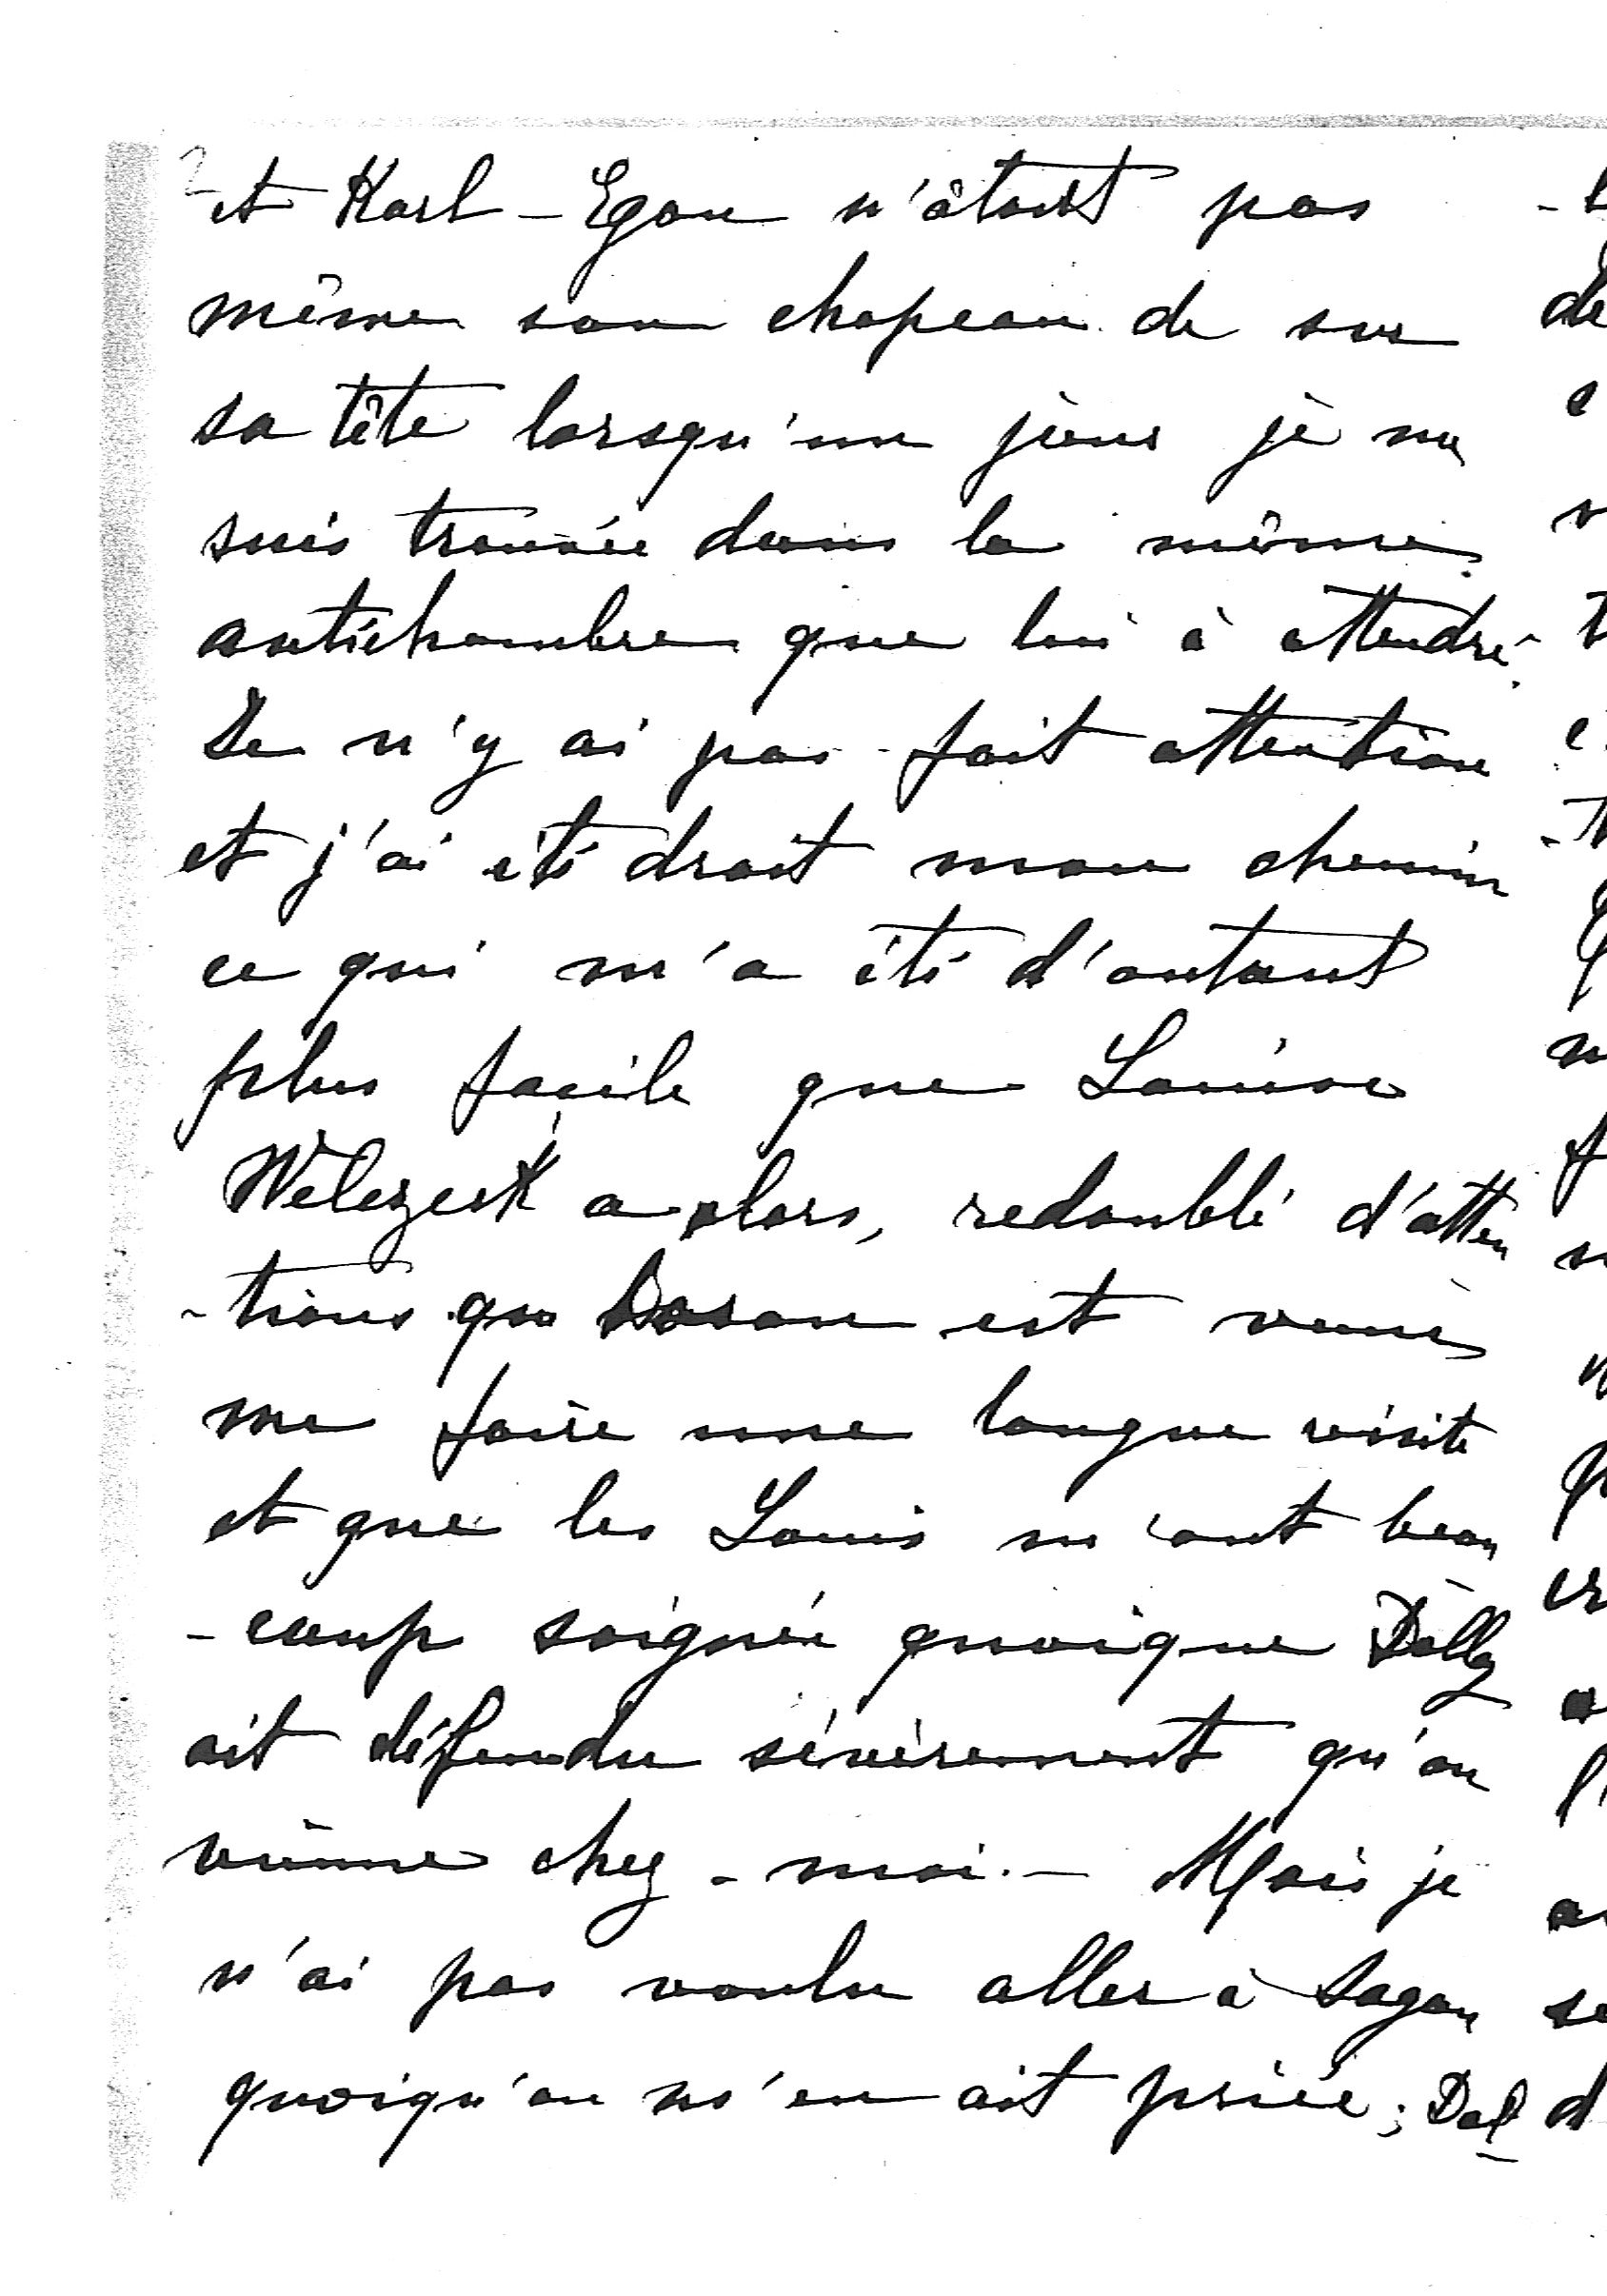 2
et Karl-Egon n'ôtait pas
même son chapeau de sur
sa tête lorsqu'un jour je me
suis trouvée dans la même
antichambre que lui à attendre.
Je n'y ai pas fait attention
et j'ai été droit mon chemin
ce qui m'a été d'autant
plus facile que Louise
Welczeck a alors, redoublé d'atten
-tions que est venue
me faire une longue visite
et que les Louis m'ont beau
-coup soignée quoique Dolly
ait défendu sévèrement qu'on
vienne chez-moi. - Mais je
n'ai pas voulu aller à Sagan
quoiqu'on m'en ait priée; Dol